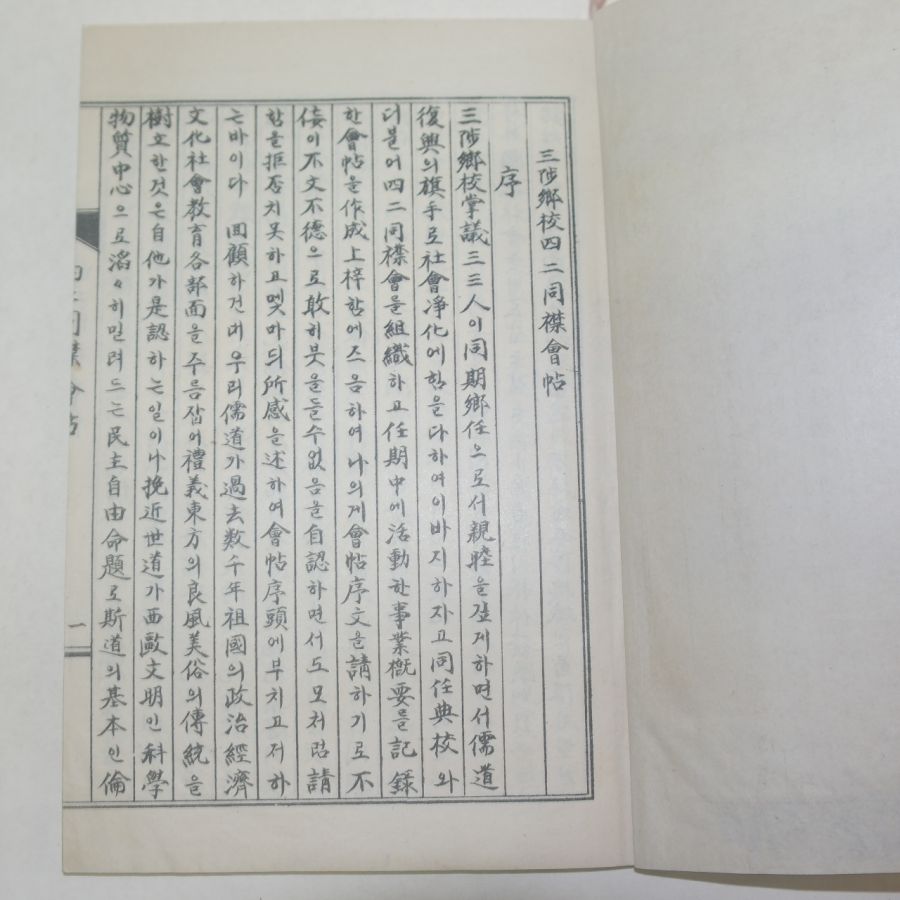 三陟鄕校四二同襟會帖
序
三陟鄕校掌議三三人이同期鄕任으로서親睦을갚게하면서儒道
復興의旗手로社會淨化에힘을다하여이바지하자고同任典校와
더불어四二同襟會를組織하고任期中에活動한事業槪要를記錄
한會帖을作成上梓함에즈음하여나의게會帖序文을請하기로不
佞이不文不德으로敢히붓을들수없음을自認하면서도모처럼請
함을拒否치못하고몇마듸所感을述하여會帖序頭에부치고저하
는바이다 回顧하건대우리儒道가過去数千年祖國의政治經濟
文化社會敎育各部面을주름잡어禮義東方의良風美俗의傳統을
樹立한것은自他가是認하는일이나挽近世道가西歐文明인科學
物質中心으로滔々히밀려드는民主自由命題로斯道의基本인倫
四二同襟會帖
一